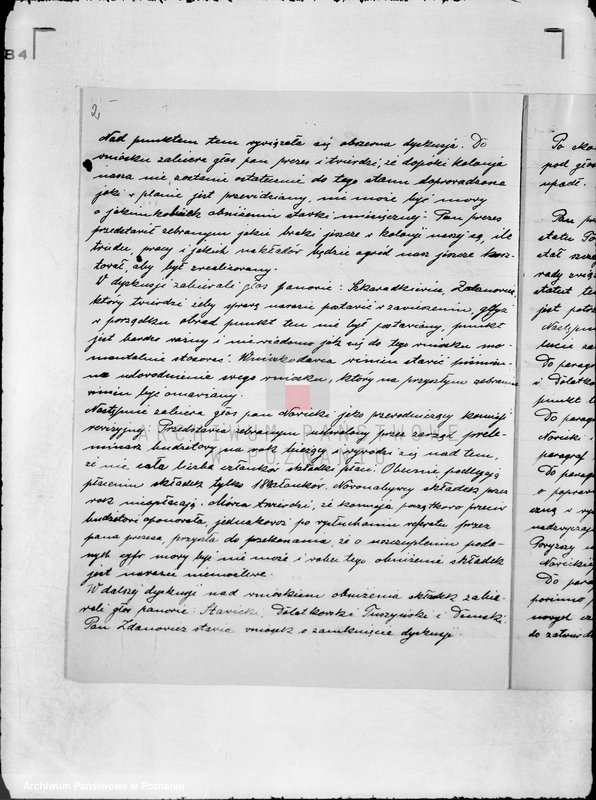 84
2
Nad punktem tem wywiązała się obszerna dyskusja. Do
wniosku zabiera głos pan prezes i twierdzi, że dopóki kolonja
nasza nie zostanie ostatecznie do tego stanu doprowadzona
jaki w planie jest przewidziany, nie może być mowy
o jakimkolwiek obniżeniu stawki miesięcznej. Pan prezes
przedstawił zebranym jakie braki jeszcze w kolonji naszej są, ile
trudu, pracy i jakich nakładów będzie ogród nasz jeszcze kosz-
tował, aby być zrealizowany.
W dyskusji zabierali głos panowie: Zdanowicz,
który twierdzi żeby sprawę narazie postawić w zawieszeniu, gdyż
w porządku obrad punkt ten nie był postawiony, punkt
jest bardzo ważny i nie wiadomo jak się do tego wniosku mo-
mentalnie stosować. Wnioskodawca winien stawić piśmien-
na udowodnienie swego wniosku, który na przyszłym zebraniu
winien być omawiany.
Następnie zabiera głos pan Nowicki jako przewodniczący komisji
rewizyjnej. Przedstawia zebranym uchwalony przez zarząd preli-
minarz budżetowy na rok bieżący i wywodzi się nad tem,
że nie cała liczba członków składki płaci. Obecnie podlegają
płaceniu składek tylko członków. Nowonabywcy składek przez
rok nie opłacają, mówca twierdzi, że komisja początkowo przeciw
budżetowi oponowała, jednakowoż po wysłuchaniu referatu przez
pana prezesa, przyszła do przekonania, że o uszczupleniu poda-
nych cyfr mowy być nie może i wobec tego obniżenie składek
jest narazie niemożliwe.
W dalszej dyskusji nad wnioskiem obniżenia składek zabie-
rali głos panowie: Sawicki, Dolatkowski Tuszyński i Demski.
Pan Zdanowicz stawia wniosek o zamknięcie dyskusji.
pod głos
upadł.
statutu
rady
statut te
jest
Następnie
Do paragr
i Dolatko
punkt
Do parag
Nowicki
paragraf
Do parag
o popraw
nadzwyczaj
Nowickiego
Do parag
pomimo
nowych
do zatwierdz
ARCHIWUM PAŃSTWOWE
W POZNANIU
Archiwum Państwowe w Poznaniu